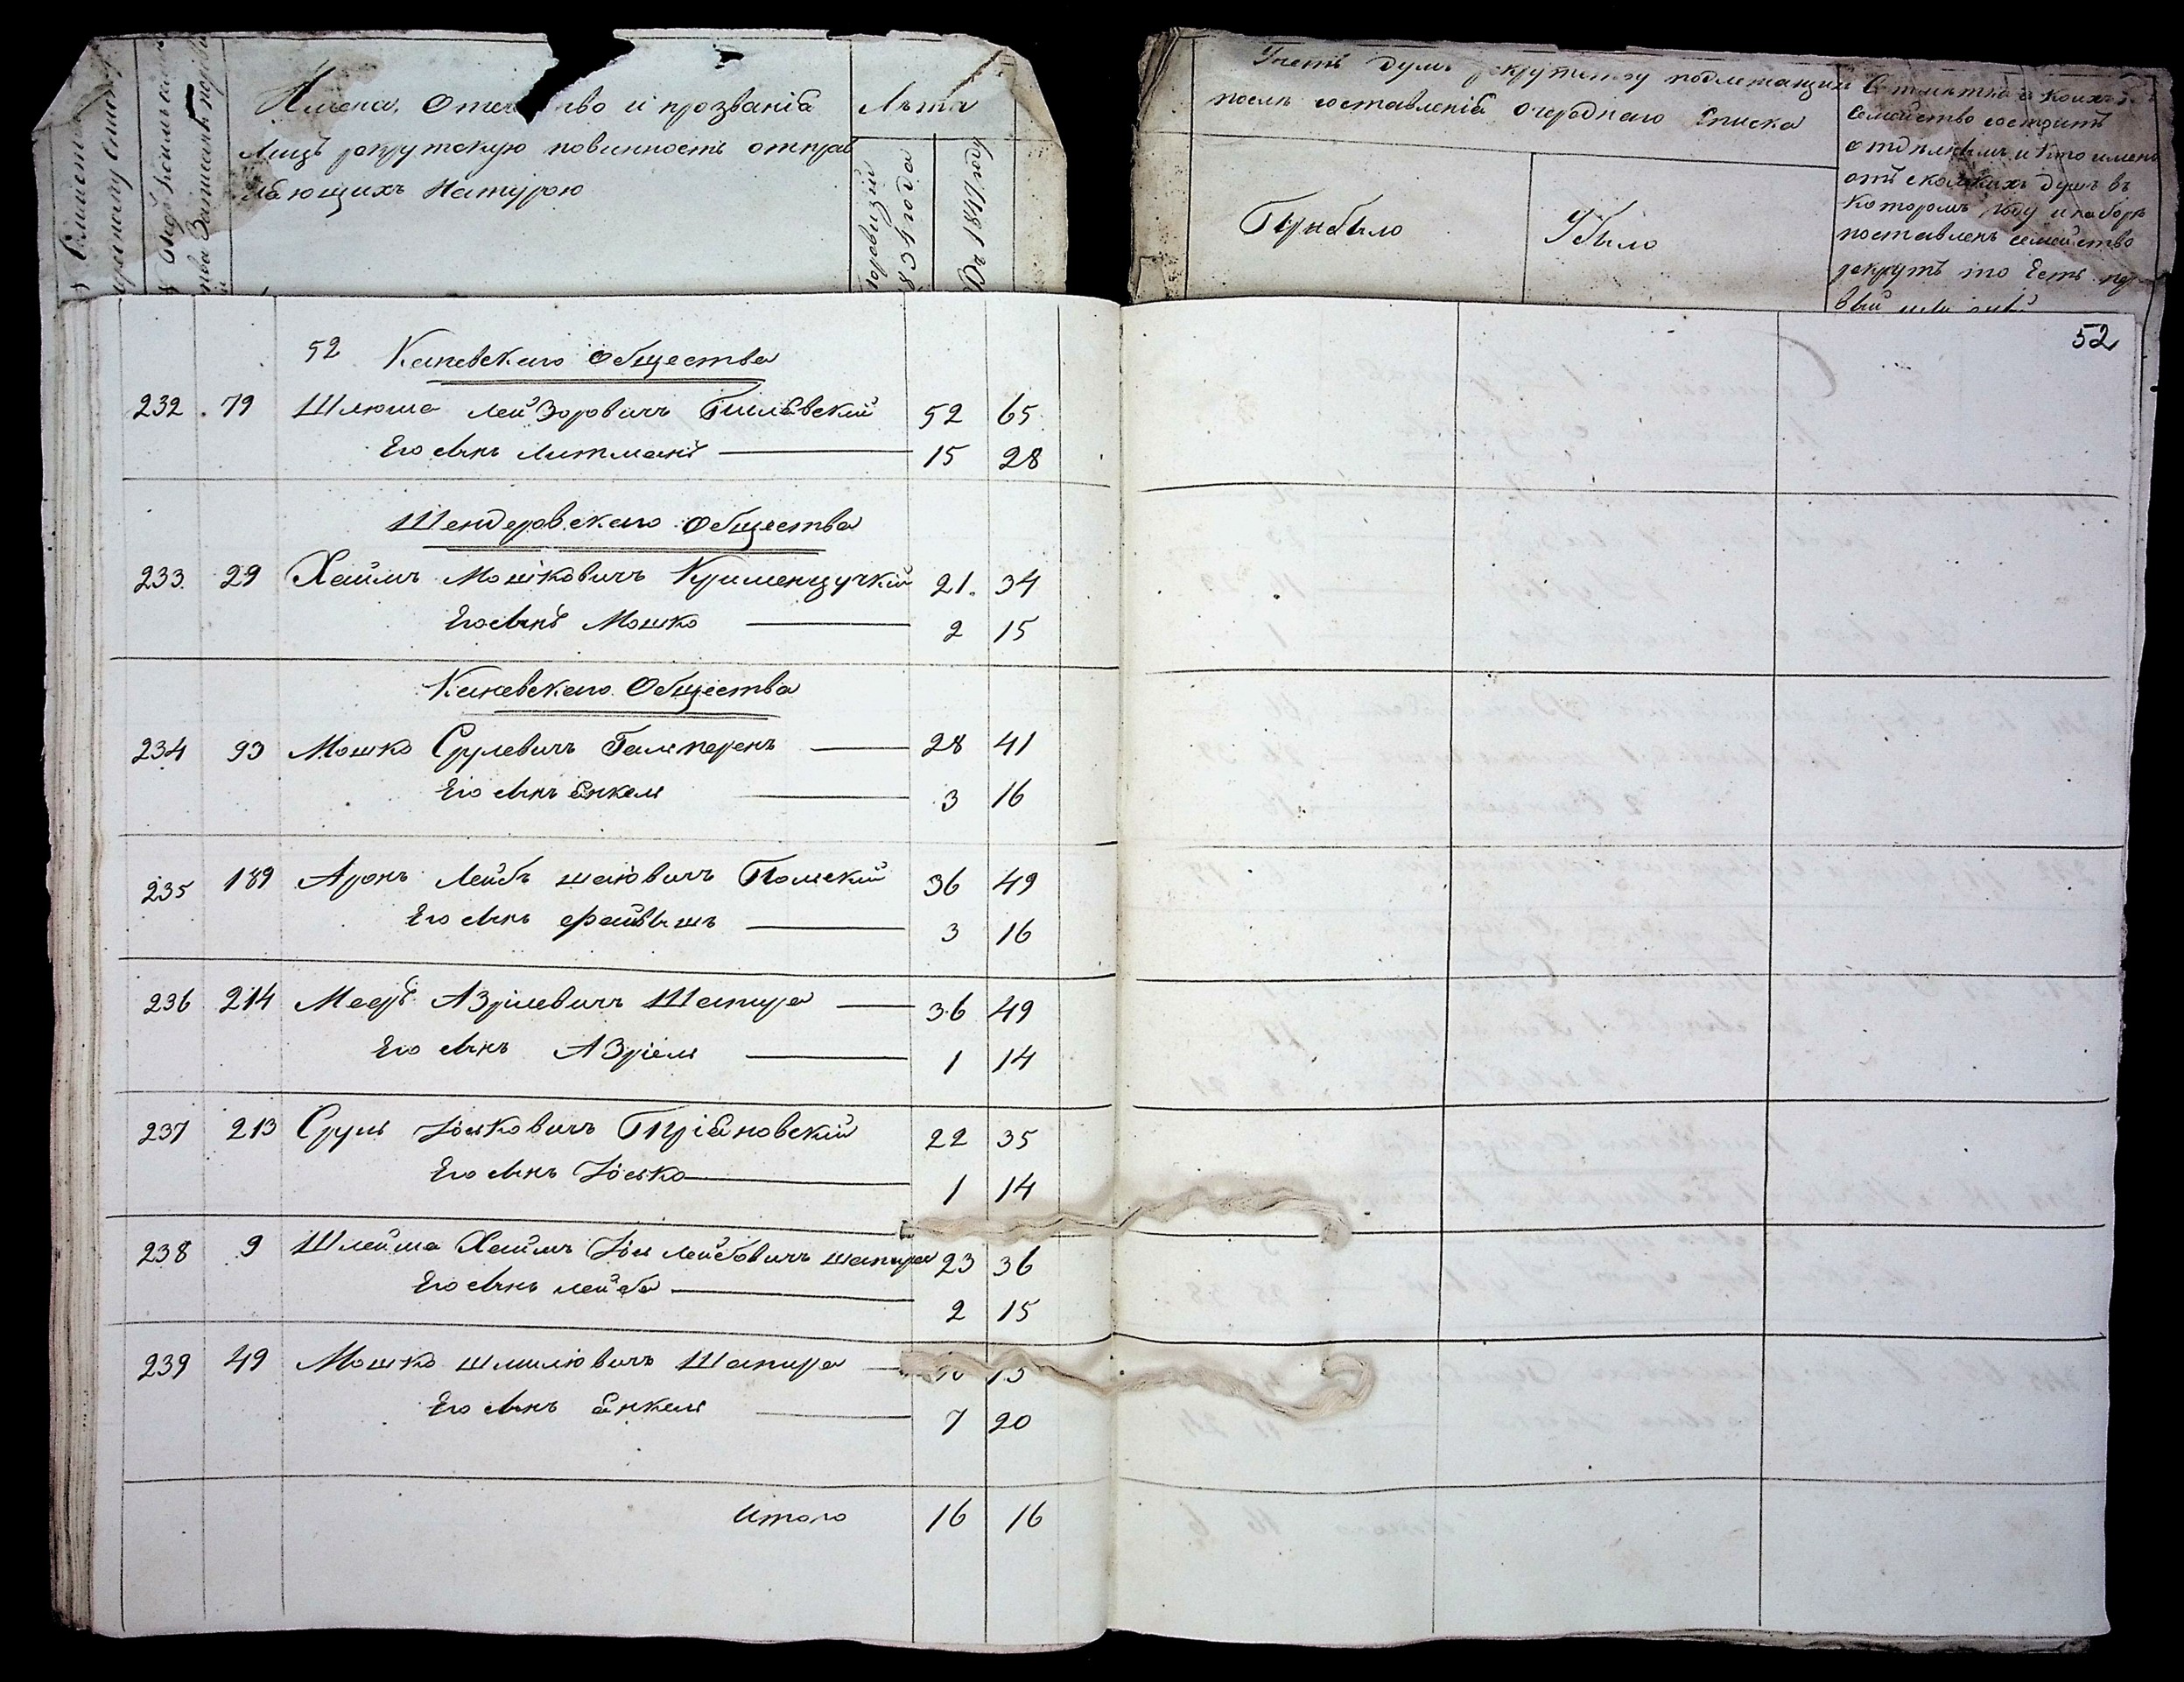 Имена, Отечество и прозванія
Лицъ рекрутскую повинность отправ
ляющихъ Натурою
Лѣта
По ревизіи
1834 года
Въ 1847 году
Учетъ душъ рекрутству подлежащихъ
послѣ составленія Очереднаго Списка
Прибыло
Убыло
Семейство состоитъ
отъ сколькихъ душъ въ
которомъ году и наборѣ
поставленъ семейство
рекрутъ то Есть пер
вый или
52
52 Каневскаго Общества
232 79 Шлюма Лейзоровичъ Билявскій 52 65
Его сынъ Литманъ 15 28
Шендеровскаго Общества
233 29 Хаимъ Мошковичъ Крименчучкій 21 34
Его сынъ Мошко 2 15
Каневскаго Общества
234 93 Мошко Срулевичъ Гальперенъ 28 41
Его сынъ Янкель 3 16
235 189 Аронъ Лейбъ Шаювичъ Польскій 36 49
Его сынъ Файвышъ 3 16
236 214 Мееръ Азрілевичъ Шапира 36 49
Его сынъ Азріель 1 14
237 213 Сруль Іоськовичъ Пріяновскій 22 35
Его сынъ Іосько 1 14
238 9 Шлейма Хаимъ Іось Лейбовичъ Шапира 23 36
Его сынъ Лейба 2 15
239 49 Мошко Шмилювичъ Шапира
Его сынъ Янкель 7 20
Итого 16 16